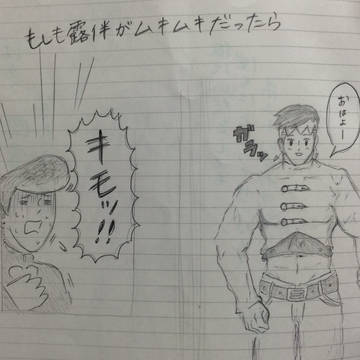 もしも露伴がムキムキだったら
おはよー
ガラッ
キモッ!!